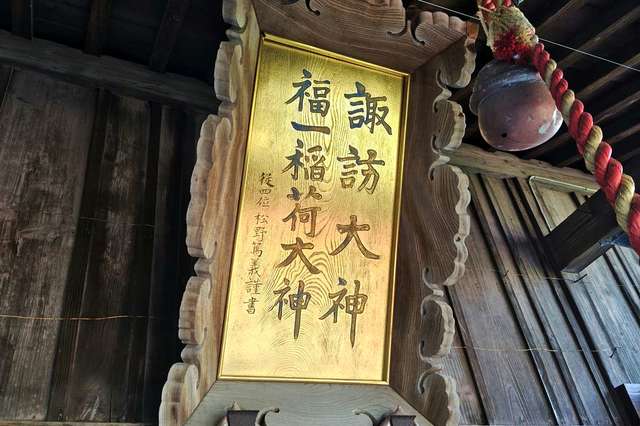 諏訪大神
福一稲荷大神
従四位松野篤義謹書